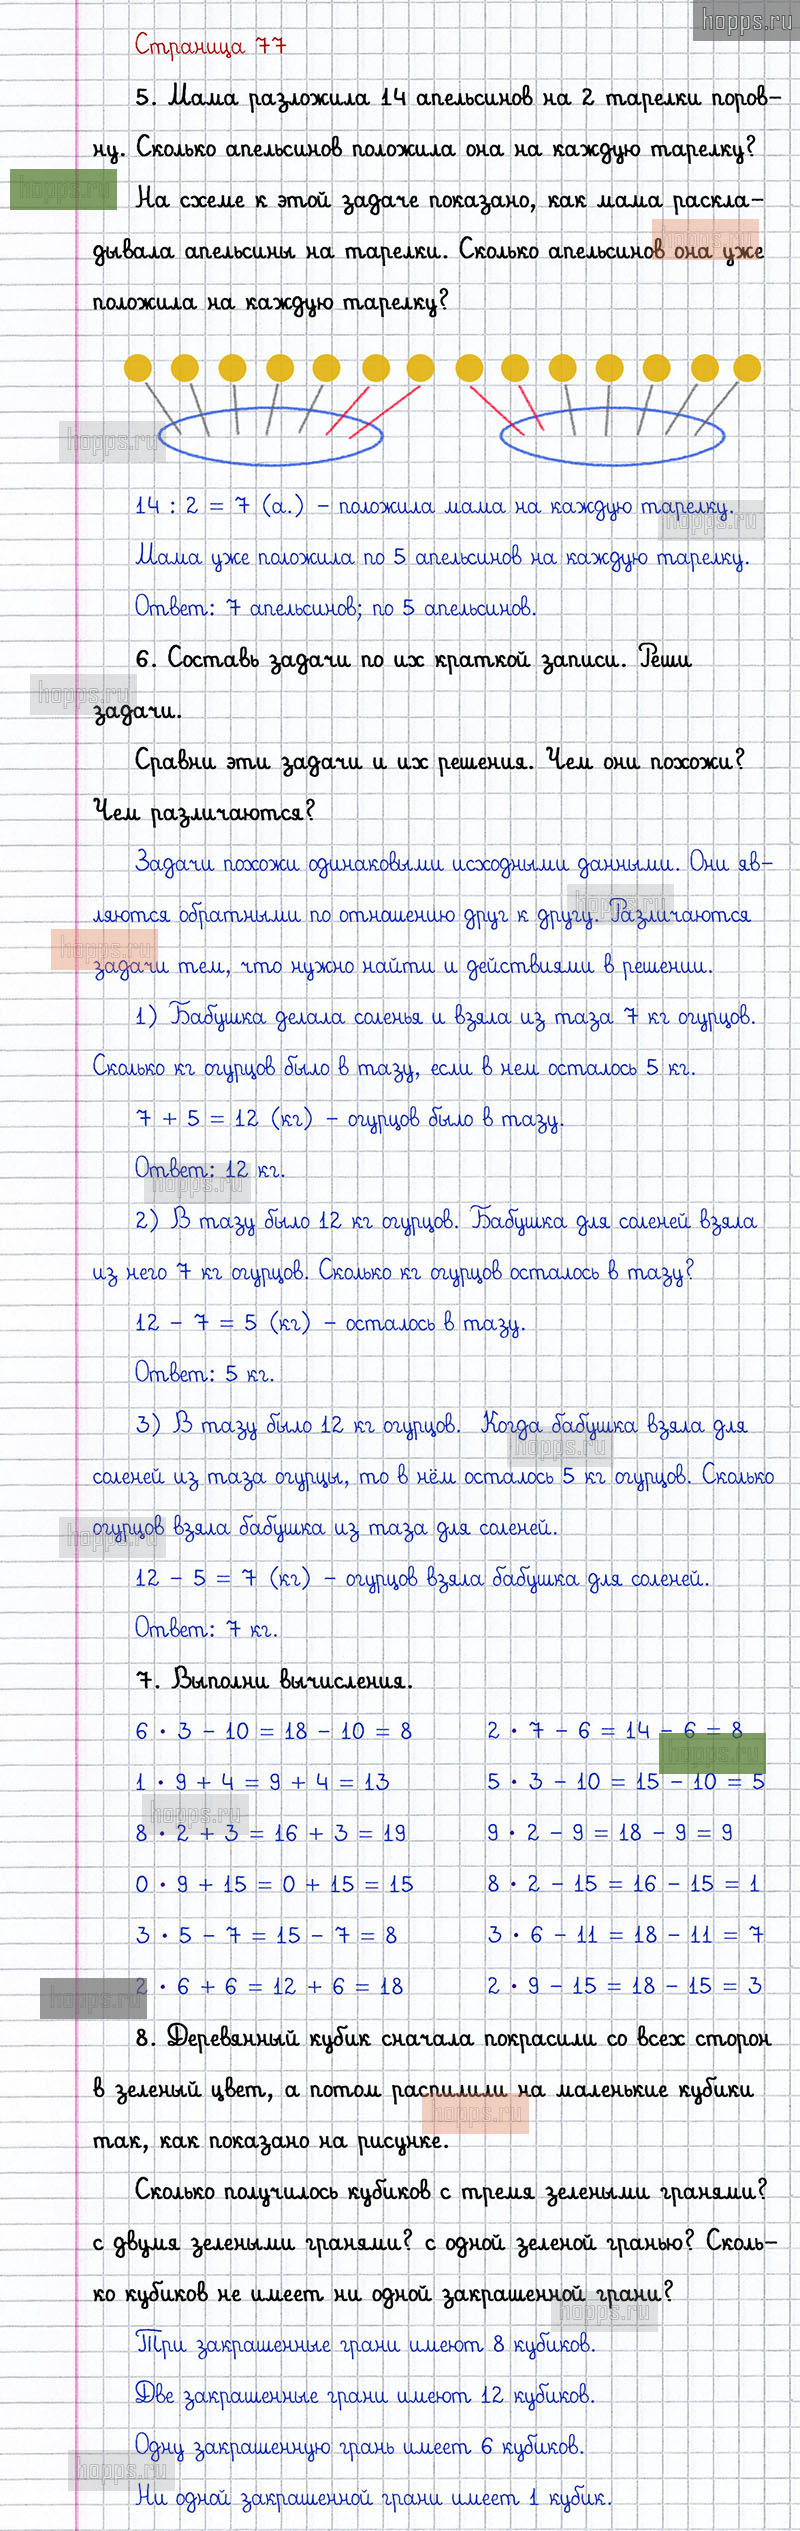 hopps.ru
Страница 77
5. Мама разложила 14 апельсинов на 2 тарелки поров-
ну. Сколько апельсинов положила она на каждую тарелку?
hopps.ru
На схеме к этой задаче показано, как мама раскла-
hopps.ru
дывала апельсины на тарелки. Сколько апельсинов она уже
положила на каждую тарелку?
hopps.ru
14 : 2 = 7 (а.) – положила мама на каждую тарелку.
hopps.ru
Мама уже положила по 5 апельсинов на каждую тарелку.
Ответ: 7 апельсинов; по 5 апельсинов.
6. Составь задачи по их краткой записи. Реши
hopps.ru
задачи.
Сравни эти задачи и их решения. Чем они похожи?
Чем различаются?
Задачи похожи одинаковыми исходными данными. Они яв-
hopps.ru
ляются обратными по отношению друг к другу. Различаются
hopps.ru
задачи тем, что нужно найти и действиями в решении.
1) Бабушка делала соленья и взяла из таза 7 кг огурцов.
Сколько кг огурцов было в тазу, если в нем осталось 5 кг.
7 + 5 = 12 (кг) – огурцов было в тазу.
Ответ: 12 кг.
hopps.ru
2) В тазу было 12 кг огурцов. Бабушка для соленей взяла
из него 7 кг огурцов. Сколько кг огурцов осталось в тазу?
12 – 7 = 5 (кг) – осталось в тазу.
Ответ: 5 кг.
3) В тазу было 12 кг огурцов. Когда бабушка взяла для
hopps.ru
соленей из таза огурцы, то в нём осталось 5 кг огурцов. Сколько
огурцов взяла бабушка из таза для соленей.
hopps.ru
12 – 5 = 7 (кг) – огурцов взяла бабушка для соленей.
Ответ: 7 кг.
7. Выполни вычисления.
6 · 3 – 10 = 18 – 10 = 8 2 · 7 – 6 = 14 – 6 = 8
hopps.ru
1 · 9 + 4 = 9 + 4 = 13 5 · 3 – 10 = 15 – 10 = 5
hopps.ru
8 · 2 + 3 = 16 + 3 = 19 9 · 2 – 9 = 18 – 9 = 9
0 · 9 + 15 = 0 + 15 = 15 8 · 2 – 15 = 16 – 15 = 1
3 · 5 – 7 = 15 – 7 = 8 3 · 6 – 11 = 18 – 11 = 7
2 · 6 + 6 = 12 + 6 = 18 2 · 9 – 15 = 18 – 15 = 3
hopps.ru
8. Деревянный кубик сначала покрасили со всех сторон
в зеленый цвет, а потом распилили на маленькие кубики
hopps.ru
так, как показано на рисунке.
Сколько получилось кубиков с тремя зелеными гранями?
с двумя зелеными гранями? с одной зеленой гранью? Сколь-
ко кубиков не имеет ни одной закрашенной грани?
hopps.ru
Три закрашенные грани имеют 8 кубиков.
Две закрашенные грани имеют 12 кубиков.
Одну закрашенную грань имеет 6 кубиков.
hopps.ru
Ни одной закрашенной грани имеет 1 кубик.